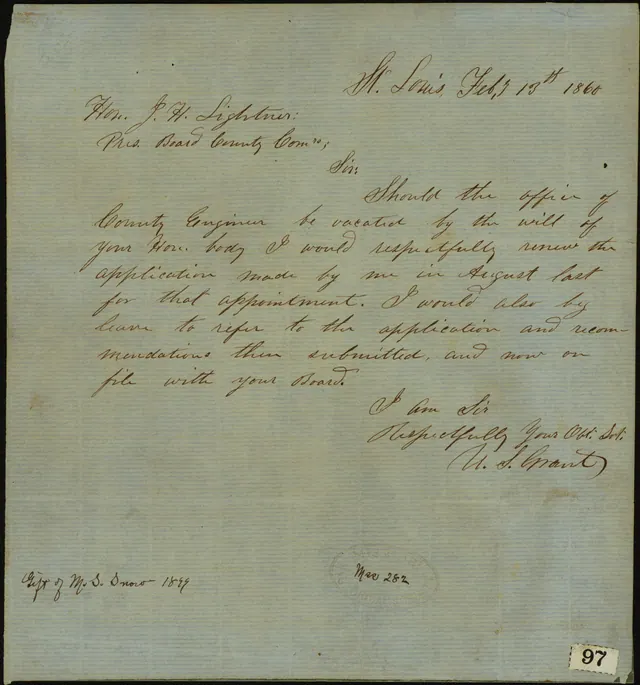 St. Louis, Feb,y 13th 1860
Hon. J. H. Lightner:
Pres. Board County Comrs,
Sir;
Should the office of
County Engineer be vacated by the will of
your Hon. body I would respectfully renew the
application made by me in August last
for that appointment. I would also beg
leave to refer to the application and recom-
mendations then submitted, and now on
file with your Board.
I am Sir
Respectfully Your Obt. Svt.
U. S. Grant
Gift of M. S. Snow 1899
Mss 282
97